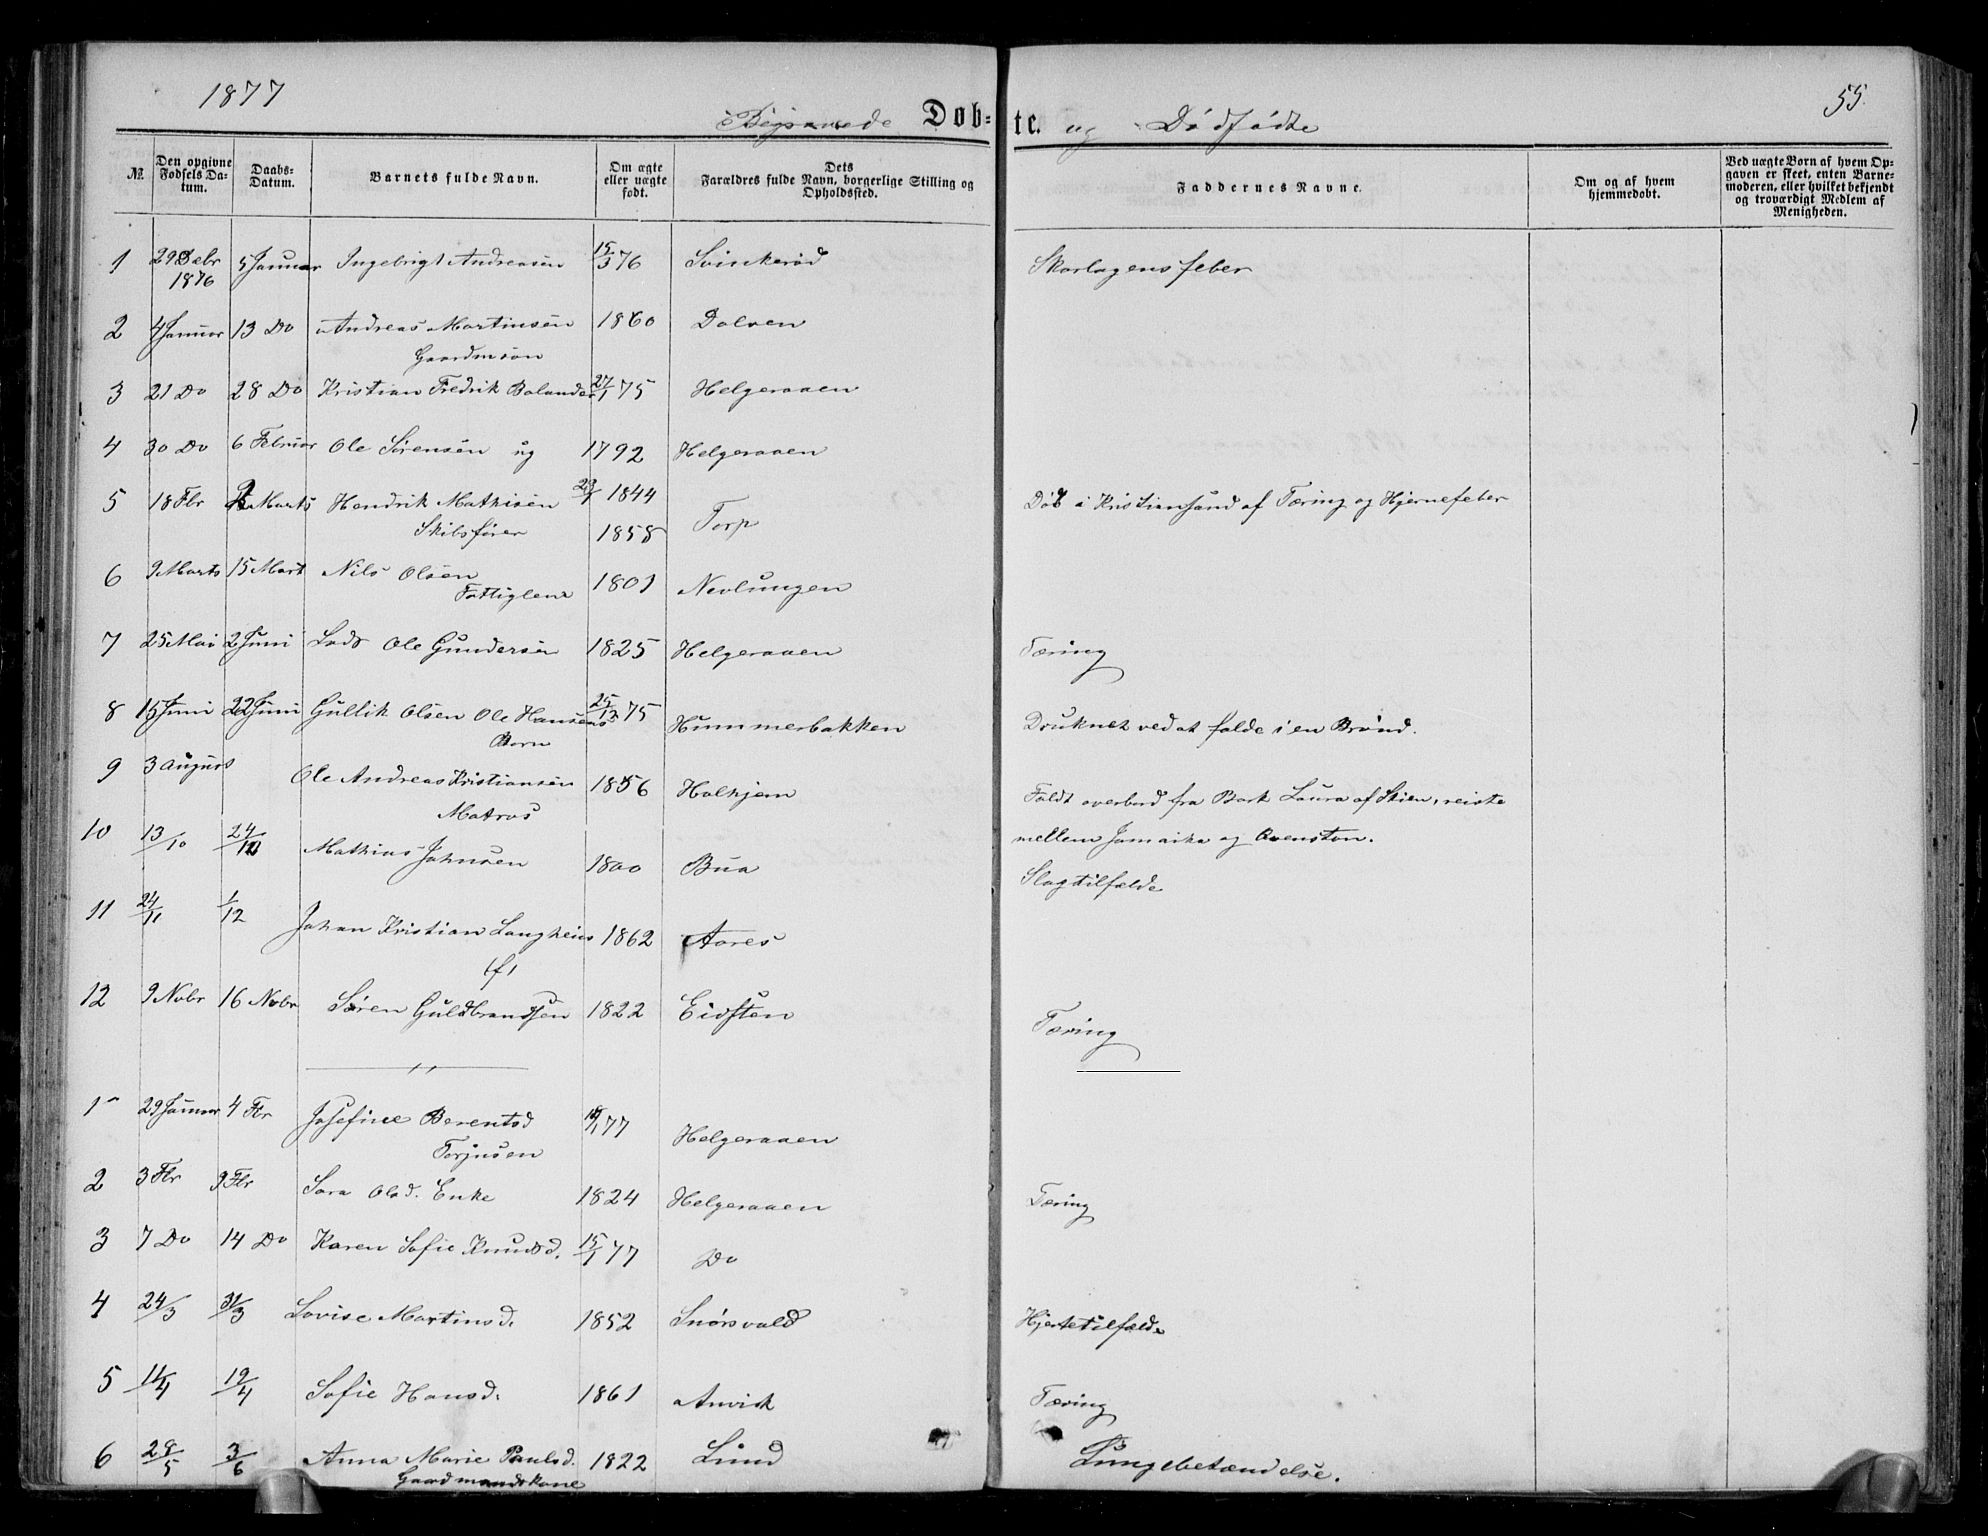 1877
55.
Begravede Døb-te. og Dødfødte
№.
Den opgivne Fødsels Datum.
Daabs-Datum.
Barnets fulde Navn.
Om ægte eller uægte født.
Dets Forældres fulde Navn, borgerlige Stilling og Opholdssted.
Faddernes Navne.
Om og af hvem hjemmedøbt.
Ved uægte Børn af hvem Opgaven er skeet, enten Barnemoderen, eller hvilket bekjendt og troværdigt Medlem af Menigheden.
1 29 Debr 1876 5 Januar Ingebrigt Andreasen 15/3 76 Svinkerød Skarlagensfeber
2 4 Januar 13 Do Andreas Martinsen 1860 Dolven
Gaardmsøn
3 21 Do 28 Do Kristian Fredrik Bolander 27/1 75 Helgeraaen
4 30 Do 6 Februar Ole Sørensen ug 1792 Helgeraaen
5 18 Fbr Marts Hendrik Mathisen 1844 Død i Kristiansand af Tæring og Hjernefeber
Skibsfører 1858 Torp
6 9 Marts 15 Mart Nils Olsen 1801 Nevlungen
Fattiglem
7 25 Mai 2 Juni Lods Ole Gundersen 1825 Helgeraaen Tæring
8 15 Juni 22 Juni Gullik Olsen Ole Hansens 25/12 75 Hummerbakken Druknet ved at falde i en Brønd.
Barn
9 3 August Ole Andreas Kristiansen 1856 Halhjem Faldt overbord fra Bark Laura af Skien, reiste
Matros mellem Jamaika og
10 13/10 24/10 Mathias Johnsen 1800 Bua Slagtilfælde
11 24/11 1/12 Johan Kristian Langheim 1862 Aares
(f)
12 9 Nvbr 16 Nvbr Søren Guldbrandsen 1822 Eidsten Tæring
1 29 Januar 4 Fbr Josefine Berentsd 77 Helgeraaen
Torjusen
2 3 Fbr 9 Fbr Sara Olsd. Enke 1824 Helgeraaen Tæring
3 7 Do 14 Do Karen Sofie Knudsd. 15/1 77 Do
4 24/3 31/3 Lovise Martinsd. 1852 Snørsvald Hjertetilfælde
5 11/4 19/4 Sofie Hansd. 1861 Anvik Tæring
6 28/5 3/6 Anna Marie Paulsd. 1822 Lund Lungebetændelse.
Gaardmandskone